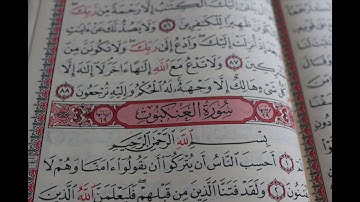 إِلَيْكَ ٱلْكِتَٰبُ إِلَّا رَحْمَةً مِّن
ظَهِيرًا لِّلْكَٰفِرِينَ ٨٦ وَلَا يَصُدُّنَّكَ عَنْ ءَايَٰتِ
إِذْ أُنزِلَتْ إِلَيْكَ وَٱدْعُ إِلَىٰ رَبِّكَ وَلَا تَكُونَنَّ مِنَ
٨٧ وَلَا تَدْعُ مَعَ ٱللَّهِ إِلَٰهًا ءَاخَرَ لَا إِلَٰهَ إِلَّا
شَىْءٍ هَالِكٌ إِلَّا وَجْهَهُ لَهُ ٱلْحُكْمُ وَإِلَيْهِ تُرْجَعُونَ ٨٨
سُورَةُ ٱلْعَنكَبُوتِ
بِسْمِ ٱللَّهِ ٱلرَّحْمَٰنِ ٱلرَّحِيمِ
١ أَحَسِبَ ٱلنَّاسُ أَن يُتْرَكُوٓا۟ أَن يَقُولُوٓا۟ ءَامَنَّا وَهُمْ لَا
٢ وَلَقَدْ فَتَنَّا ٱلَّذِينَ مِن قَبْلِهِمْ فَلَيَعْلَمَنَّ ٱللَّهُ ٱلَّذِينَ